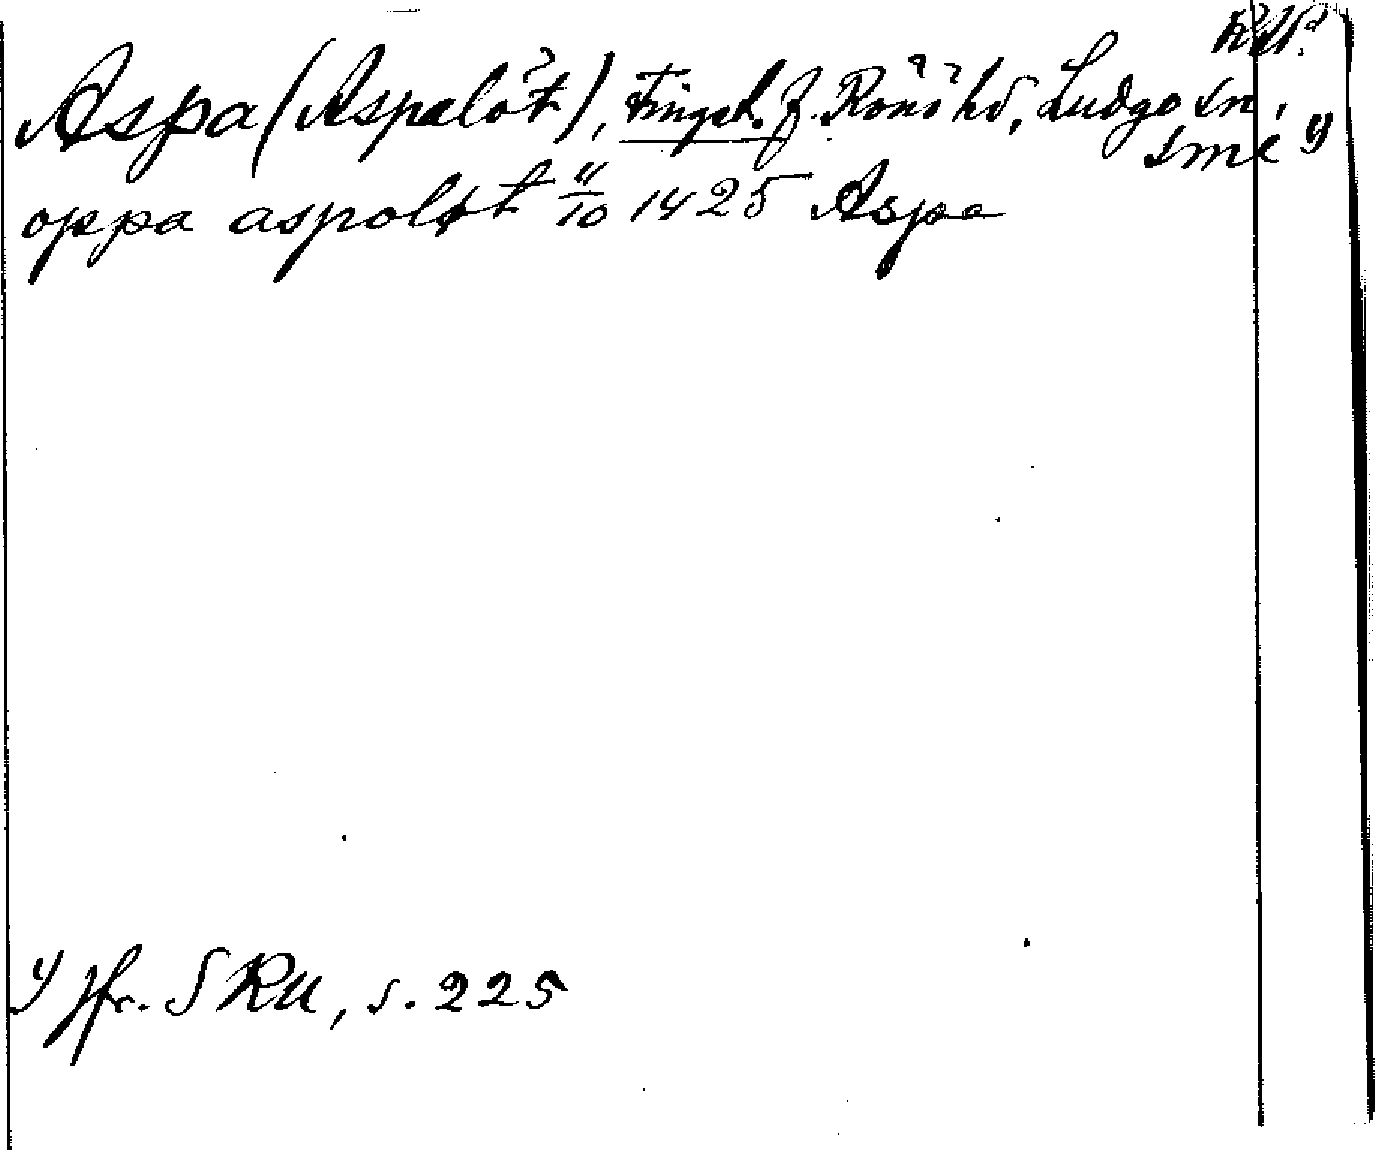 Aspa (Aspalöt), Tingsl. f. Rönö hd, Ludgo sn,
Sml 1)
oppa aspoløt 11/10 1425 Aspa
1) Jfr. SRU, s. 225